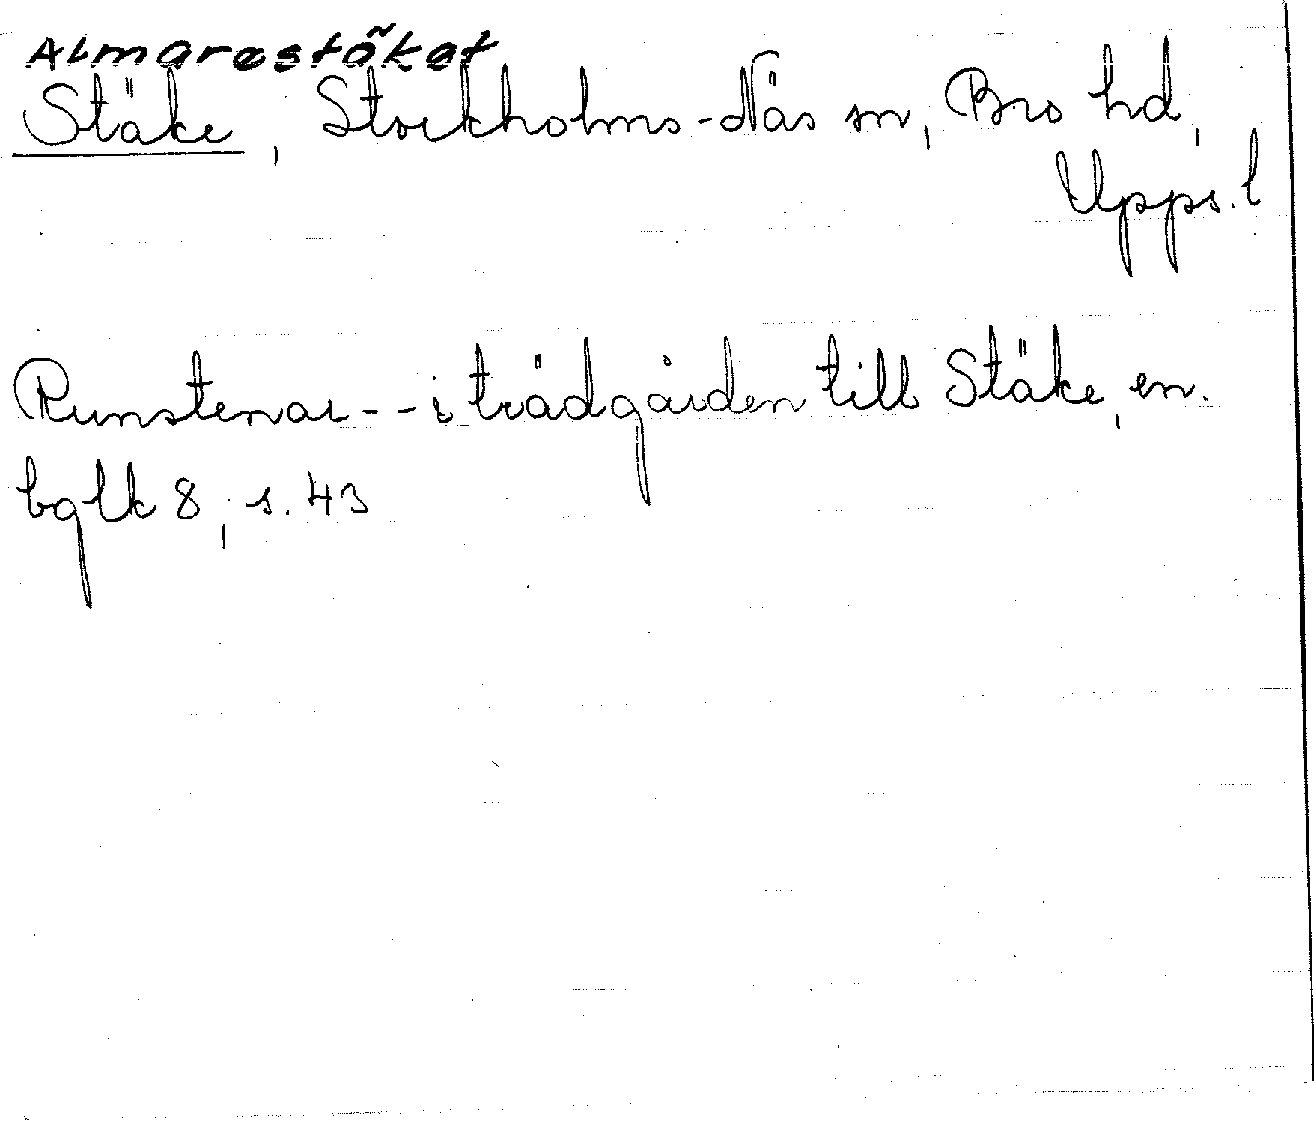 Almarestäket
Stäke, Stockholms-Näs sn, Bro hd,
Upps. l
Runstenar -- i trädgården till Stäke, en.
bglk 8, s. 43